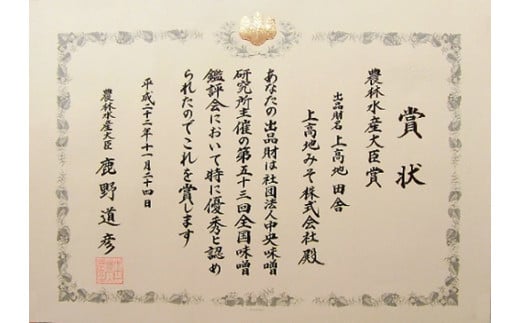 賞状
農林水産大臣賞
出品財名 上高地 田舎
上高地みそ株式会社 殿
あなたの出品財は社団法人中央味噌
研究所主催の第五十三回全国味噌
鑑評会において特に優秀と認め
られたのでこれを賞します
平成二十二年十一月二十四日
農林水産大臣 鹿野道彦